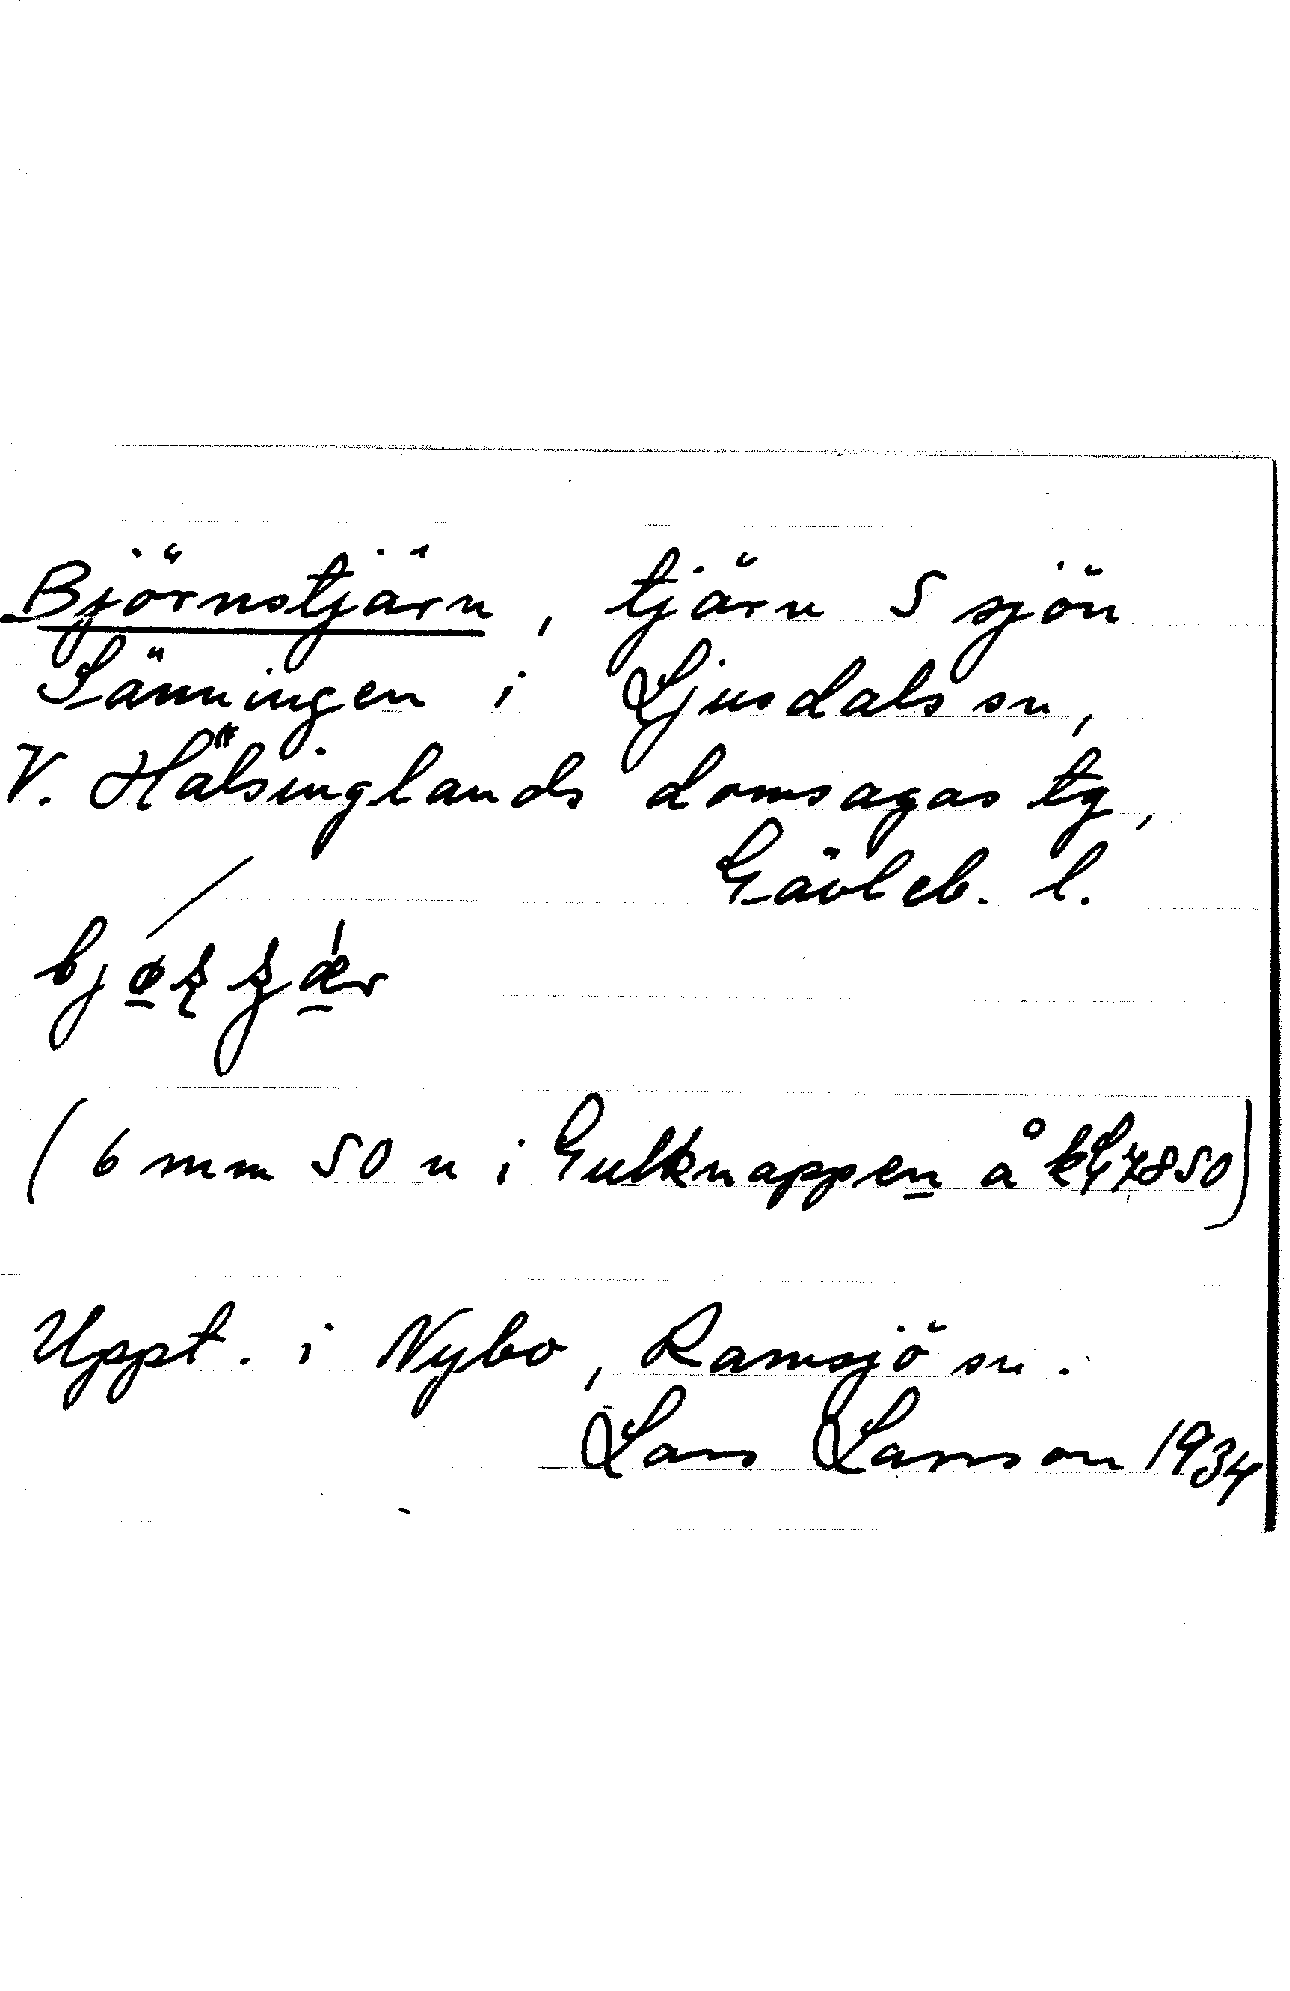 Björnstjärn, tjärn S sjön
Sänningen i Ljusdals sn,
V. Hälsinglands domsagas tg,
Gävleb. l.
(6 mm SO n i Gulknappen å 7850)
Uppt. i Nybo, Ramsjö sn.
Lars Larsson 1934